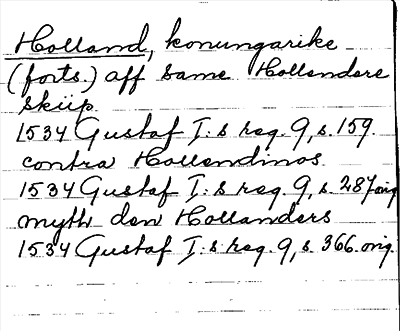 Holland, konungarike
(forts.) aff same Hollendere
skiip
1534 Gustaf I:s reg. 9, s. 159.
contra Hollendinos
1534 Gustaf I:s reg. 9, s. 287 orig
myth den Hollanders
1534 Gustaf I:s reg. 9, s. 366. orig.